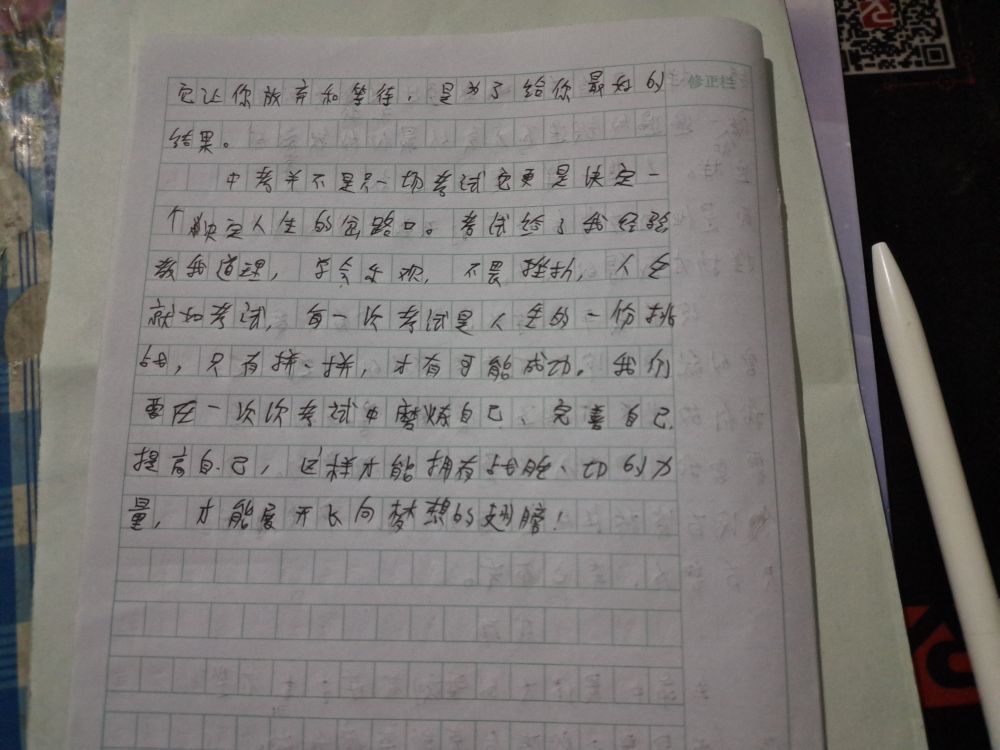 它让你放弃和等待，是为了给你最好的
修正栏
结果。
中考并不是只一场考试它更是决定一
个决定人生的岔路口。考试给了我经验
教我道理，学会乐观，不畏挫折，人生
就如考试，每一次考试是人生的一份挑
战，只有拼一拼，才有可能成功。我们
要在一次次考试中磨炼自己、完善自己
提高自己，这样才能拥有战胜一切的力
量，才能展开飞向梦想的翅膀！